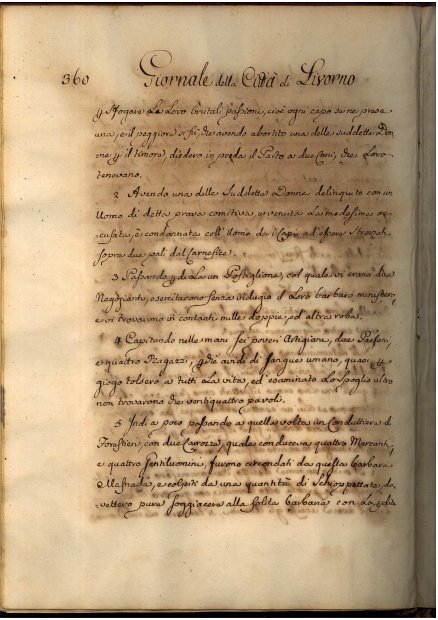 360 Giornale della Città di Livorno
p sfogare le Loro brutal passioni, cioè ogni capo se ne prese
una, e il peggiore si fù, che avendo abortito una delle suddette Don
ne p il timore, diedero in preda il Parto a due Cani, che Loro
tenevano.
2 Avendo una delle Suddette Donne delinquito con un
Uomo di detta prava comitiva, e venuta La medesima ac
cusata, è condannata coll' Uomo da i Capi ad essere
sopra due pali dal Carnefice.
3 Passando p di La un Postiglione, col quale vi erano due
Negozianti, esercitarono senza indugio il Loro barbaro ministero,
e vi trovarono in contanti mille doppie, ed altra roba.
4 Capitando nelle mani sei poveri Artigiani, due Paesani,
e quattro Ragazzi, avidi di sangue umano, quasi p
giogo tolsero a tutti La vita, ed esaminato Lo Spoglio altro
non trovarono che ventiquattro pavoli.
5 Indi a poco passando a quella volta un Conduttiere di
Forestieri, con due Carozze, quale conduceva quattro Mercanti,
e quattro Gentiluomini, furono circondati da questa barbara
Masnada, e colpiti da una quantità di Schioppettate, do
vettero pure soggiacere alla solita barbarie con La